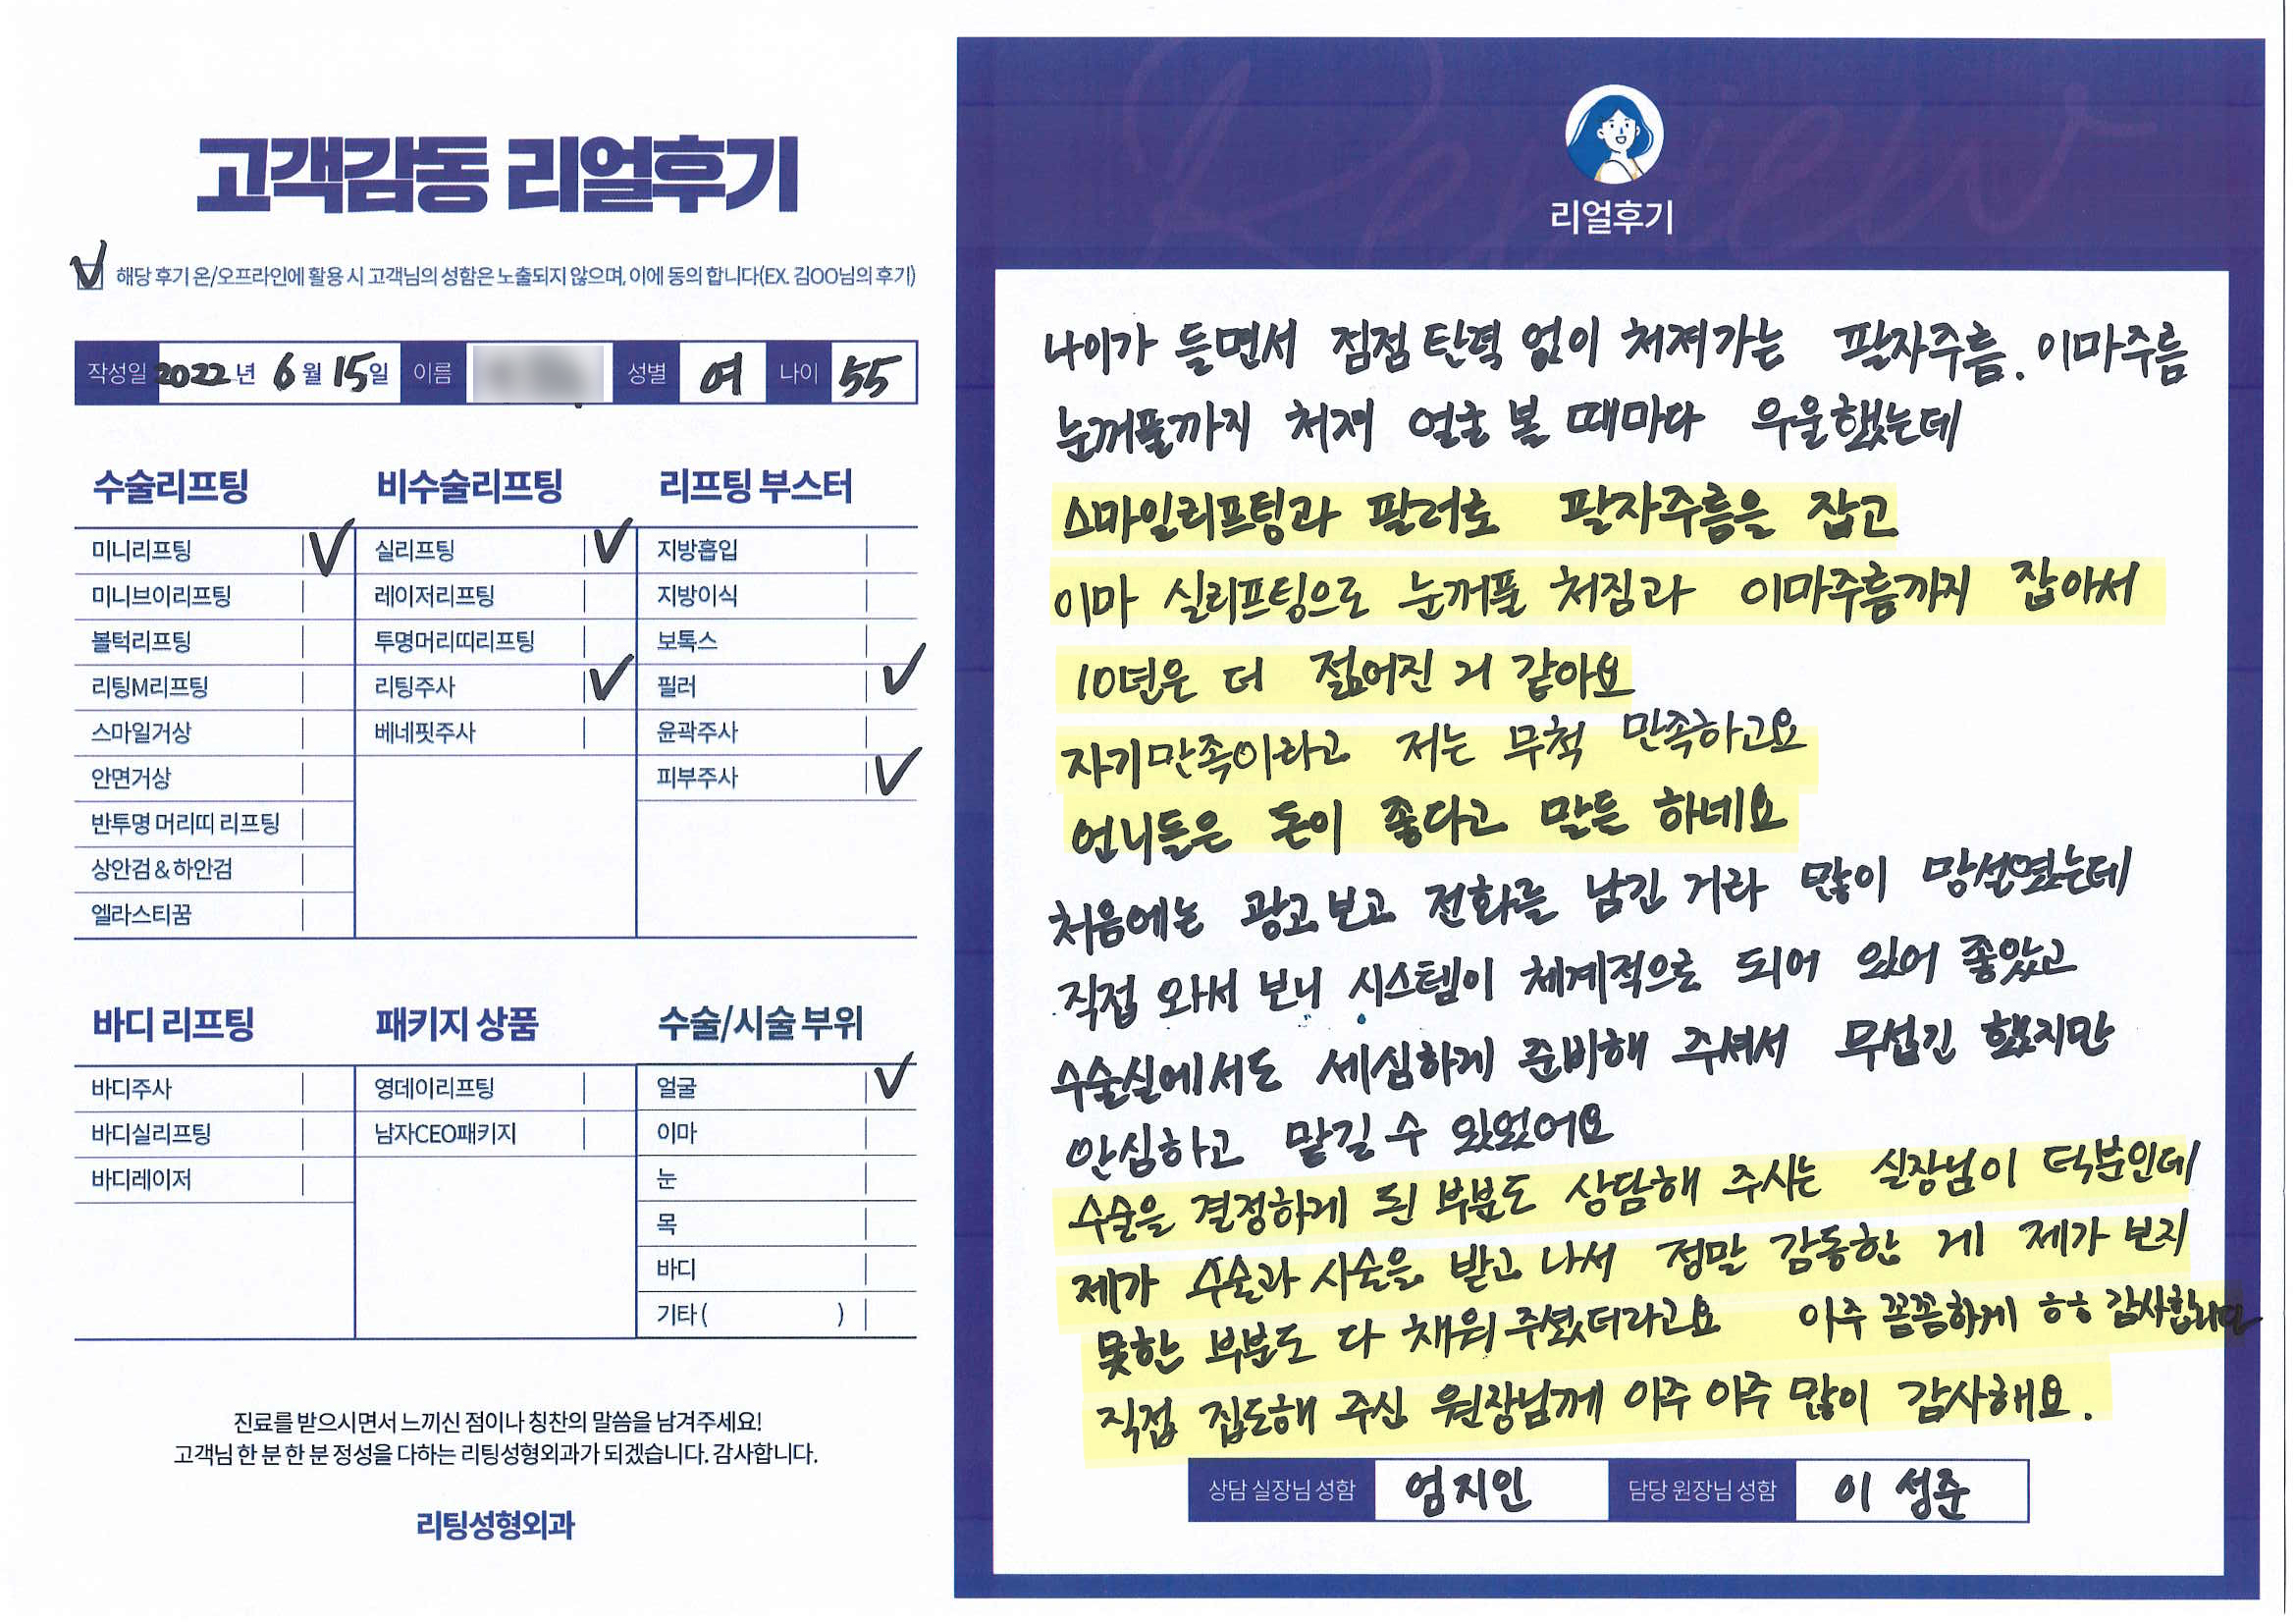 고객감동 리얼후기
해당 후기 온/오프라인에 활용 시 고객님의 성함은 노출되지 않으며, 이에 동의 합니다(EX. 김OO님의 후기)
작성일 2022년 6월 15일 이름 성별 여 나이 55
수술리프팅
미니리프팅
미니브이리프팅
볼턱리프팅
리팅M리프팅
스마일거상
안면거상
반투명 머리띠 리프팅
상안검 & 하안검
엘라스티꿈
비수술리프팅
실리프팅
레이저리프팅
투명머리띠리프팅
리팅주사
베네핏주사
리프팅 부스터
지방흡입
지방이식
보톡스
필러
윤곽주사
피부주사
바디 리프팅
바디주사
바디실리프팅
바디레이저
패키지 상품
영데이리프팅
남자CEO패키지
수술/시술 부위
얼굴
이마
눈
목
바디
기타 ( )
진료를 받으시면서 느끼신 점이나 칭찬의 말씀을 남겨주세요!
고객님 한 분 한 분 정성을 다하는 리팅성형외과가 되겠습니다. 감사합니다.
리팅성형외과
Review
리얼후기
나이가 들면서 점점 탄력 없이 처져가는 팔자주름. 이마주름
눈꺼풀까지 처져 얼굴 볼 때마다 우울했는데
스마일리프팅과 필러로 팔자주름을 잡고
이마 실리프팅으로 눈꺼풀 처짐과 이마주름까지 잡아서
10년은 더 젊어진 거 같아요
자기만족이라고 저는 무척 만족하고요
언니들은 돈이 좋다고 말들 하네요
처음에는 광고보고 전화를 남긴 거라 많이 망설였는데
직접 와서 보니 시스템이 체계적으로 되어 있어 좋았고
수술실에서도 세심하게 준비해 주셔서 무섭긴 했지만
안심하고 맡길 수 있었어요
수술을 결정하게 된 부분도 상담해 주시는 실장님이 덕분인데
제가 수술과 시술을 받고 나서 정말 감동한 게 제가 보지
못한 부분도 다 채워 주셨더라고요 아주 꼼꼼하게 ㅎㅎ 감사합니다
직접 집도해 주신 원장님께 아주 아주 많이 감사해요.
상담 실장님 성함 엄지인 담당 원장님 성함 이성준